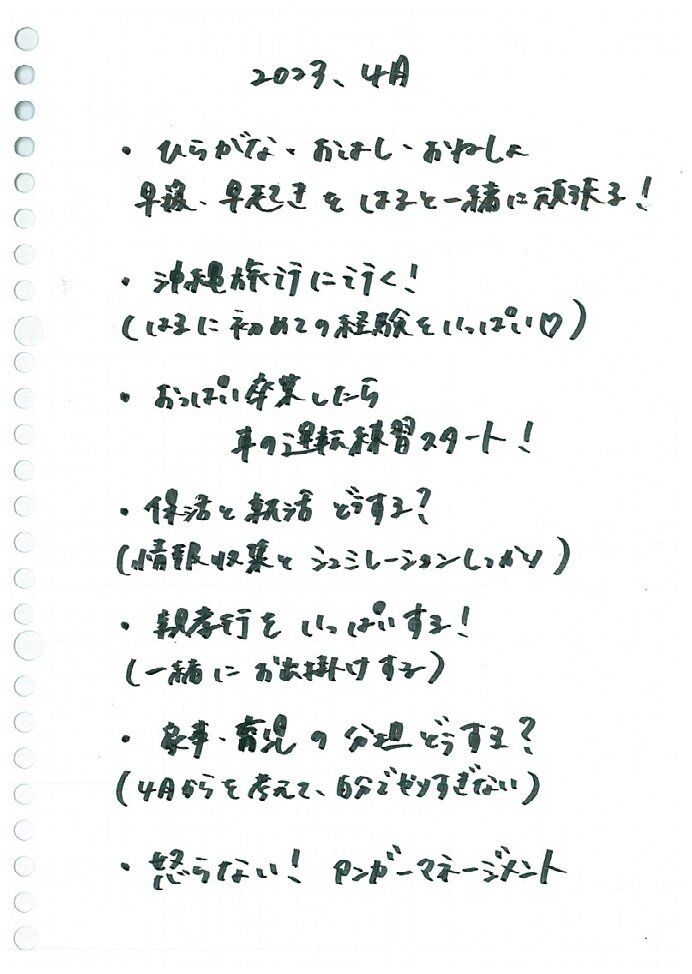 2023、4月
・ひらがな・おはし・おねしょ
早寝・早起きをはると一緒に頑張る！
・沖縄旅行に行く！
(はるに初めての経験をいっぱい♡)
・おっぱい卒業したら
車の運転練習スタート！
・保活と就活どうする？
(情報収集とシュミレーションしっかり)
・親孝行をいっぱいする！
(一緒にお出掛けする)
・家事・育児の分担どうする？
(4月からを考えて、自分でやりすぎない)
・怒らない！アンガーマネージメント